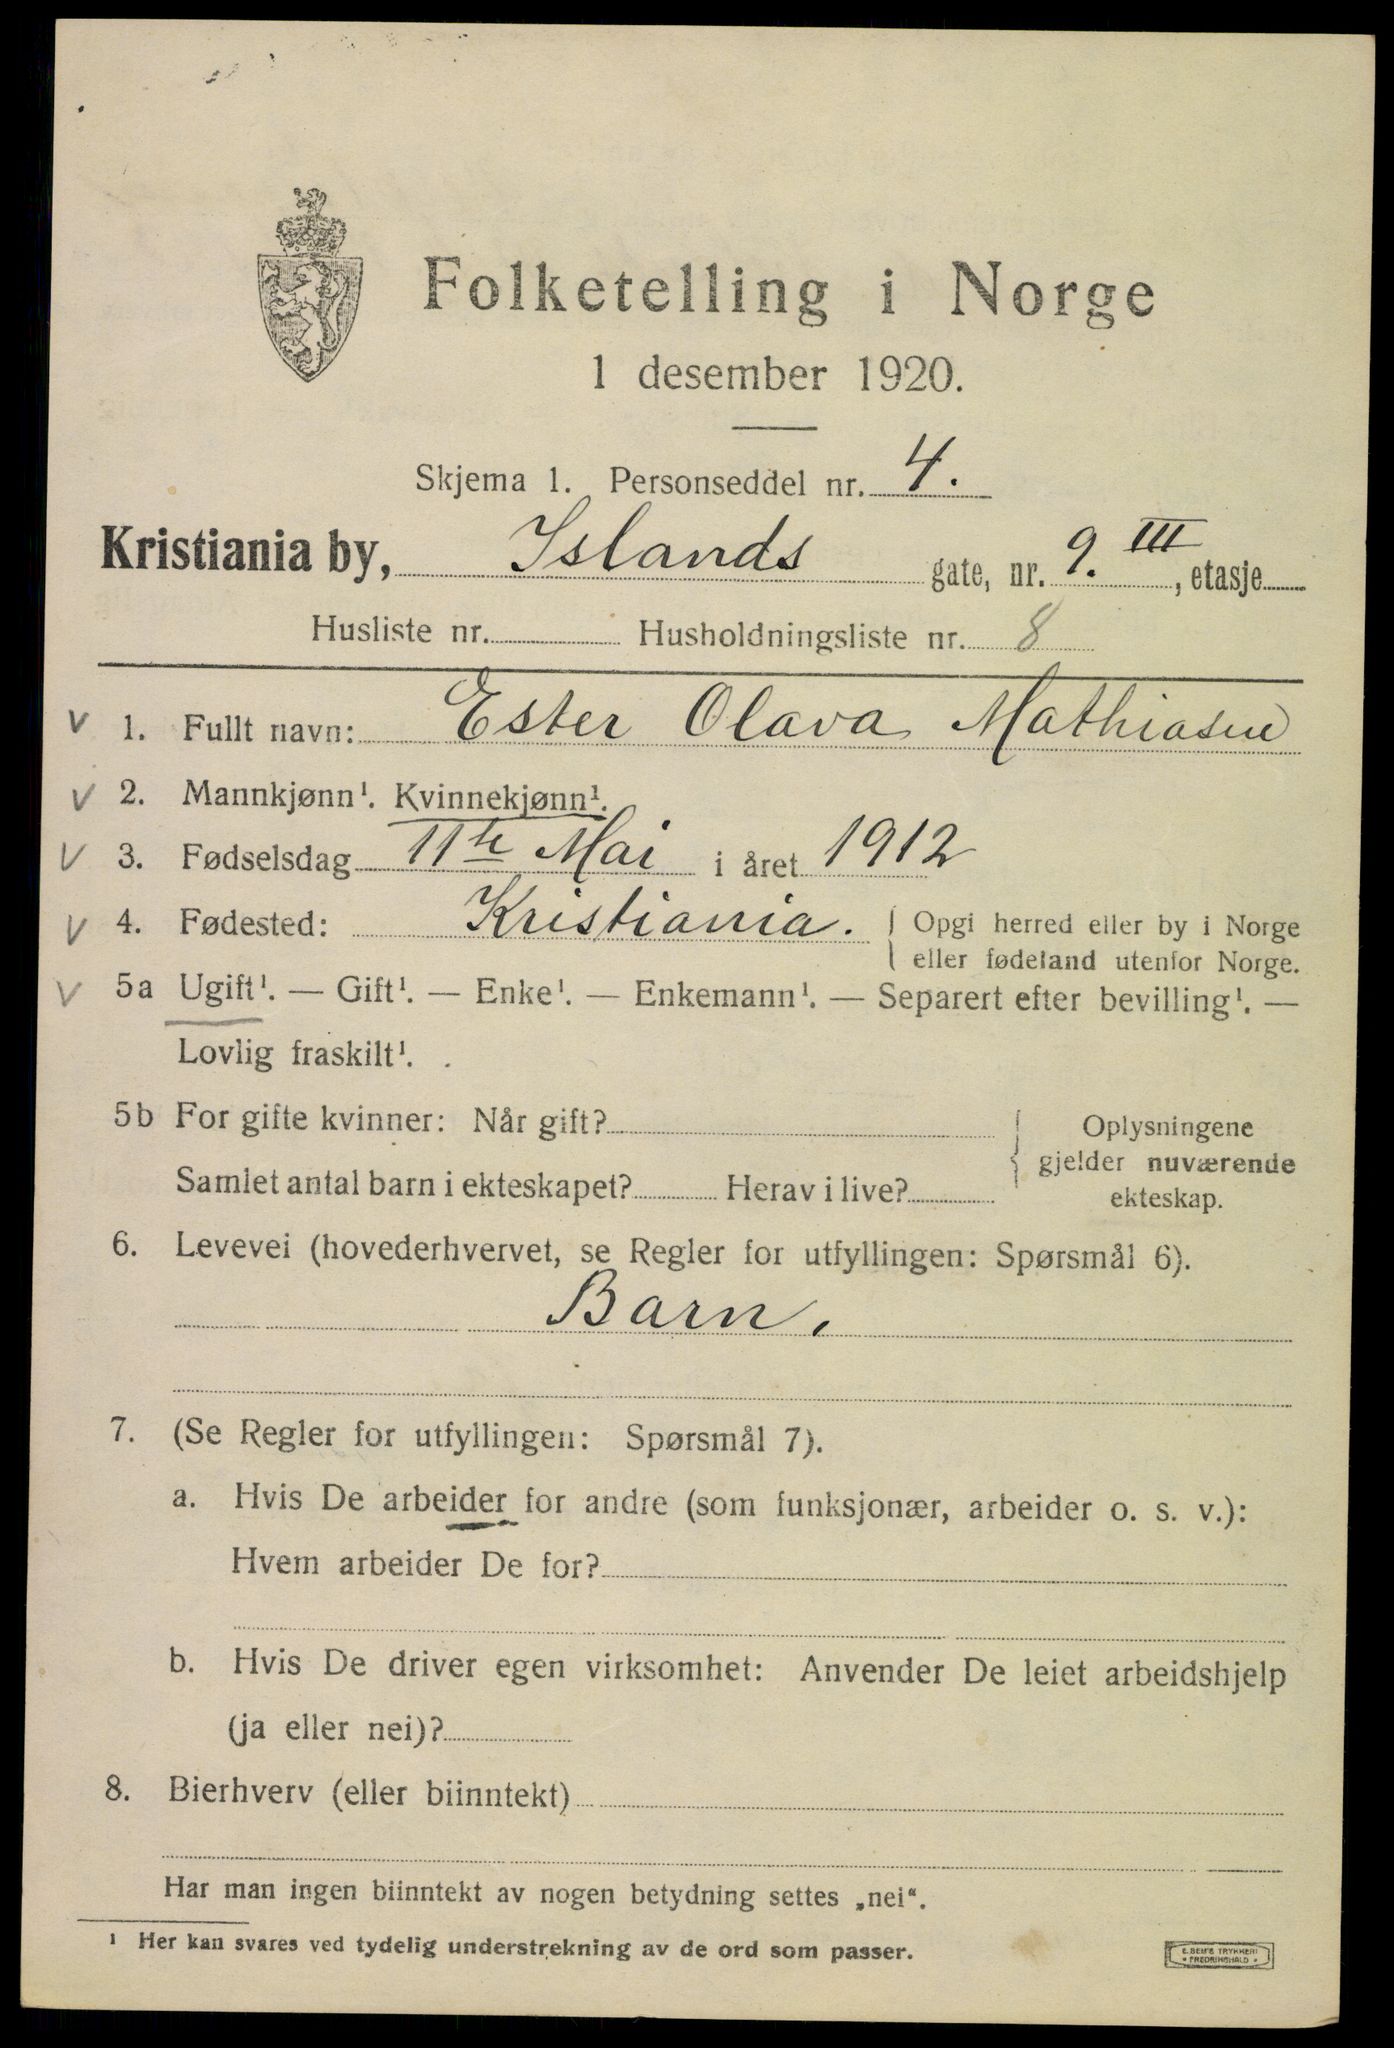 Folketelling i Norge
1 desember 1920.
Skjema 1. Personseddel nr. 4.
Kristiania by, Islands gate, nr. 9. III, etasje
Husliste nr. Husholdningsliste nr. 8
V 1. Fullt navn: Ester Olava Mathiasen
V 2. Mannkjønn¹. Kvinnekjønn¹.
V 3. Fødselsdag 11te Mai i året 1912
V 4. Fødested: Kristiania. Opgi herred eller by i Norge
eller fødeland utenfor Norge.
V 5a Ugift¹. — Gift¹. — Enke¹. — Enkemann¹. — Separert efter bevilling¹. —
Lovlig fraskilt¹.
5b For gifte kvinner: Når gift? Oplysningene
gjelder nuværende
Samlet antal barn i ekteskapet? Herav i live?
ekteskap.
6. Levevei (hovederhvervet, se Regler for utfyllingen: Spørsmål 6).
Barn.
7. (Se Regler for utfyllingen: Spørsmål 7).
a. Hvis De arbeider for andre (som funksjonær, arbeider o. s. v.):
Hvem arbeider De for?
b. Hvis De driver egen virksomhet: Anvender De leiet arbeidshjelp
(ja eller nei)?
8. Bierhverv (eller biinntekt)
Har man ingen biinntekt av nogen betydning settes „nei“.
¹ Her kan svares ved tydelig understrekning av de ord som passer.
E. SEIFE TRYKKERI
• FREDRIKSHALD •